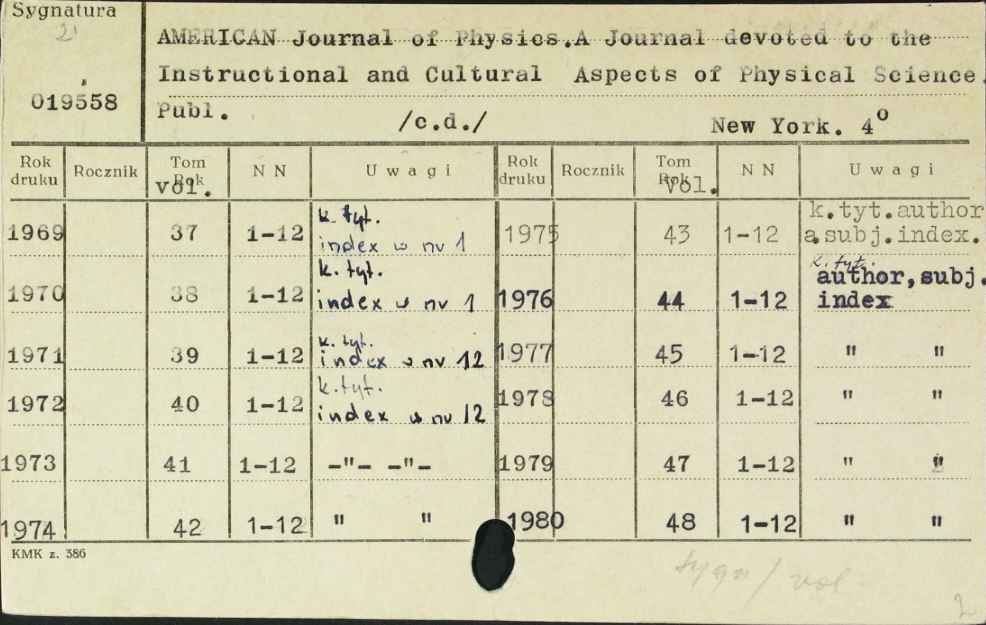 Sygnatura
2
019558
AMERICAN Journal of Physics.A Journal devoted to the
Instructional and Cultural Aspects of Physical Science.
Publ. /c.d./ New York. 4º
Rok druku Rocznik Tom Rok vol. N N Uwagi Rok druku Rocznik Tom Rok Vol. N N Uwagi
1969 37 1-12 k. tyt. index w nr 1 1975 43 1-12 k.tyt.author a subj.index.
1970 38 1-12 k. tyt. index w nr 1 1976 44 1-12 k. tyt. author,subj. index
1971 39 1-12 k. tyt. index w nr 12 1977 45 1-12 " "
1972 40 1-12 k. tyt. index w nr 12 1978 46 1-12 " "
1973 41 1-12 -"- -"- 1979 47 1-12 " "
1974 42 1-12 " " 1980 48 1-12 " "
KMK z. 386
sygn / vol
2